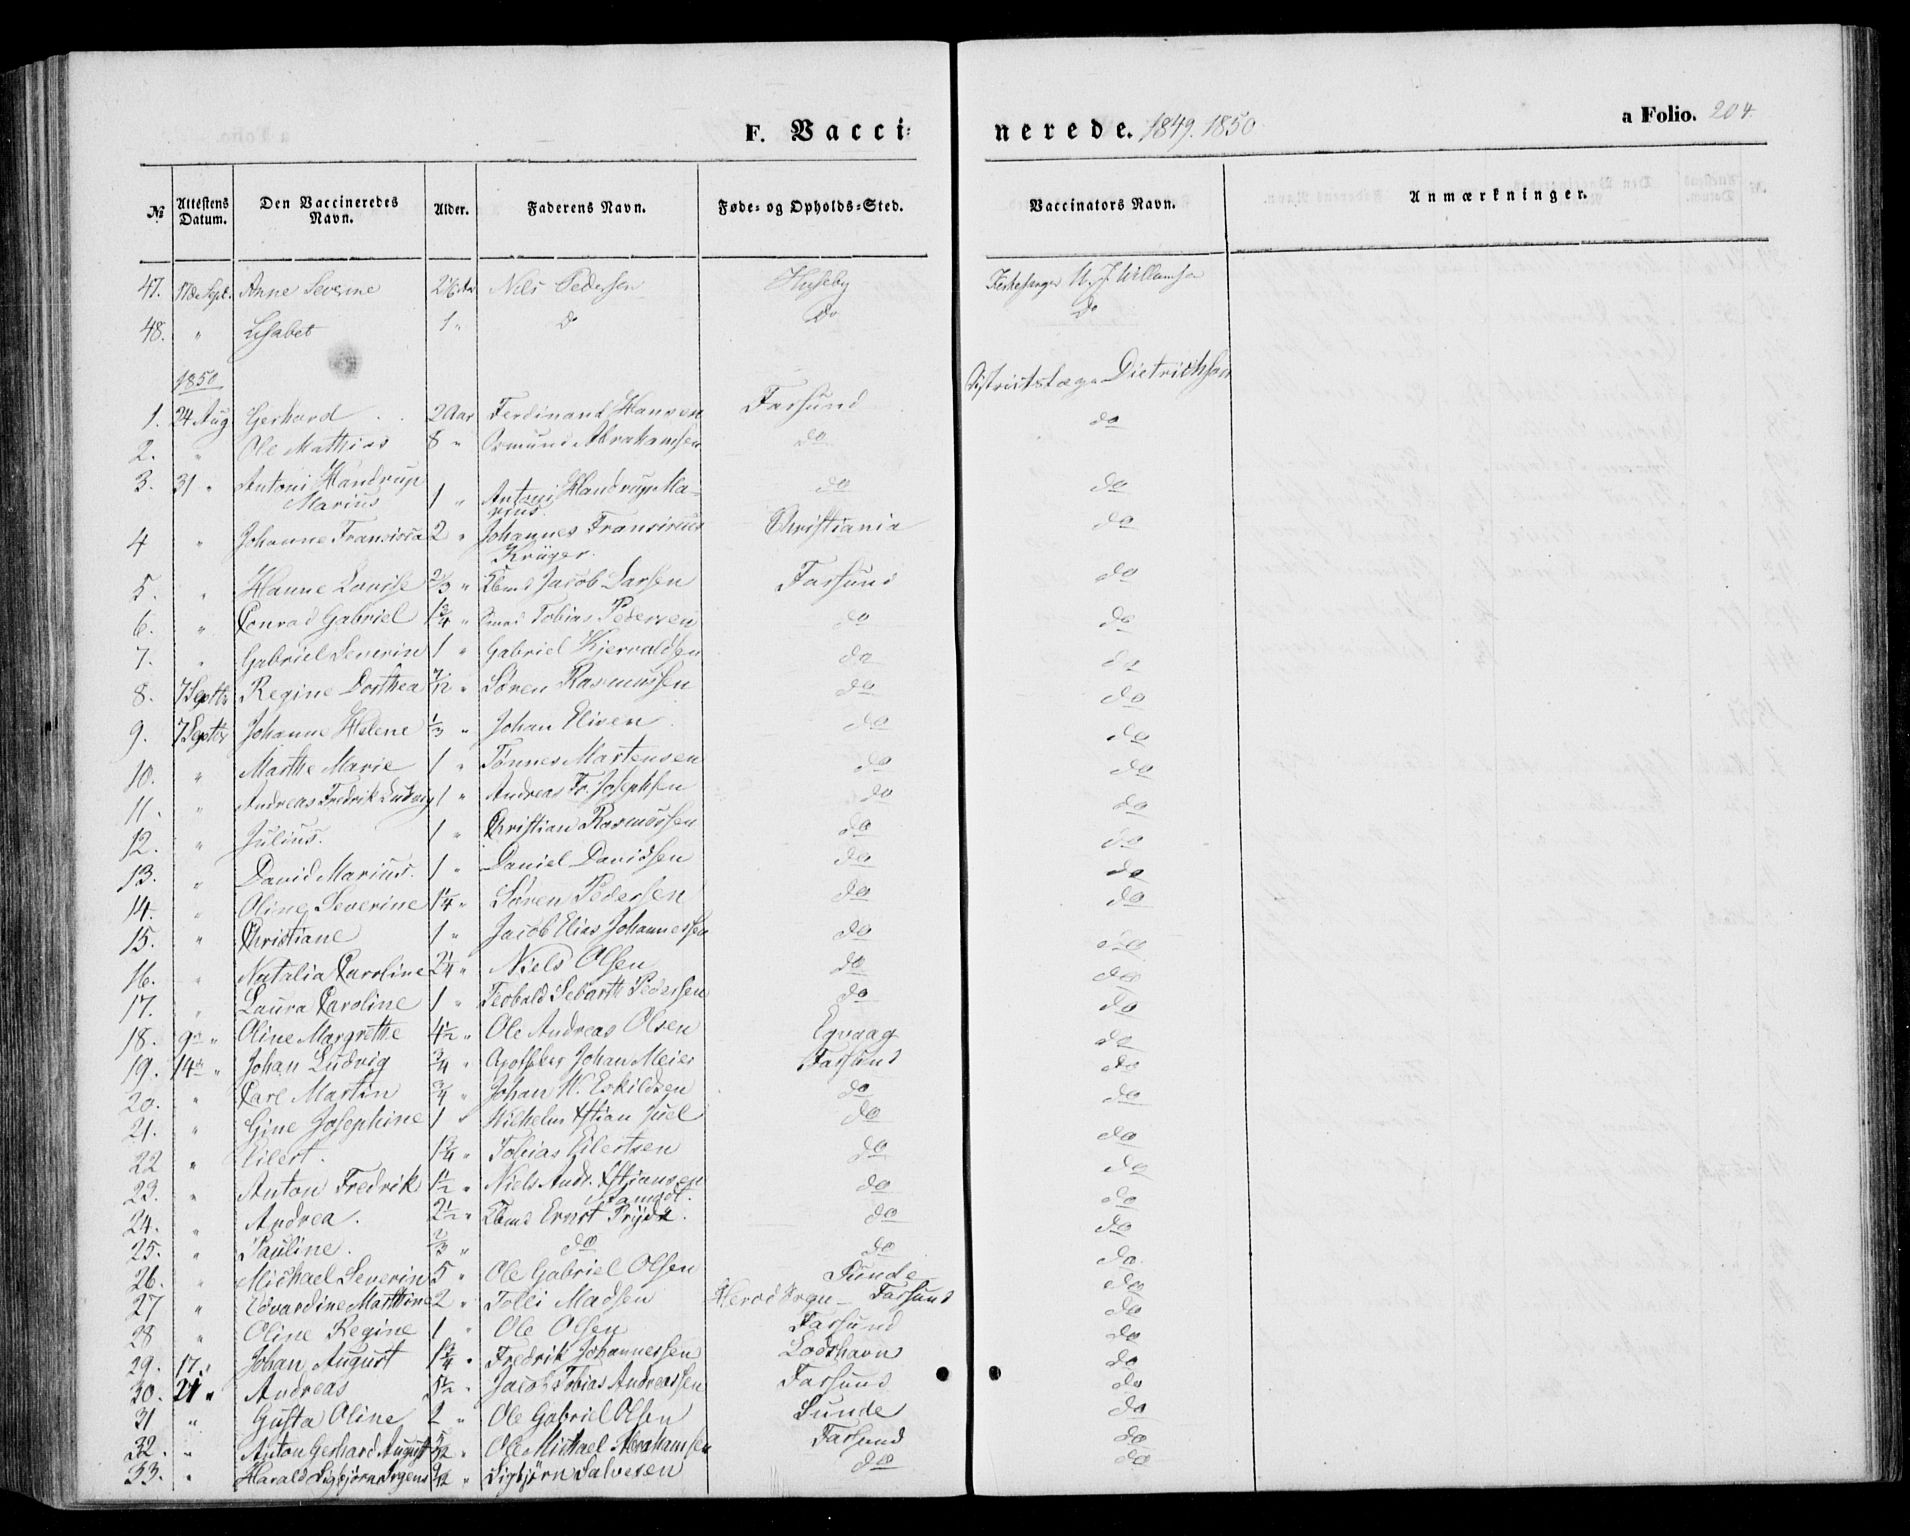 F. Vacci=
nerede. 1849. 1850
a Folio. 204.
№ Attestens Datum. Den Vaccineredes Navn. Alder. Faderens Navn. Føde- og Opholds-Sted. Vaccinators Navn. Anmærkninger.
47. 17de Sept. Anne Severine Nils Pedersen Huseby Kirkesanger Willumsen
48. " Lisabet 1 " do do do
1850 Districtslæge Dietrichson
1. 24 Aug Gerhard 2 Aar Ferdinand Hansen Farsund do
2. " Ole Mathias 8 " Osmund Abrahamsen do
3. 31 " Antoni Handrup Marius 1 " Antoni Handrup Marius do do
4 " Johanne Fransisca 2 " Johannes Fransiscus Krüger. Christiania do
5. " Hanne Lovise 2/3 " Jacob Larsen Farsund do
6. " Conrad Gabriel 1 3/4 " Tobias Pedersen do do
7. " Gabriel Severin 1 " Gabriel Kjervaldsen do do
8. 7 Septbr Regine Dorthea 7/12 " Søren Rasmussen do do
9. 7 Septbr Johanne Helene 1/3 " Johan Elisen do do
10. " Marthe Marie 1 " Tønnes Martensen do do
11. " Andreas Fredrik Ludvig 1 " Andreas Fr. Josephsen do do
12. " Julius. 1 " Christian Rasmussen do do
13. " David Marius. 1 " Daniel Davidsen do do
14. " Oline Severine 1 1/4 " Søren Pedersen do do
15. " Christiane 1 " Jacob Elias Johannessen do do
16. " Natalia Caroline 2 1/4 " Niels Olsen do do
17. " Laura Caroline 1 " Teobald Sebarth Pedersen do do
18. 9de " Oline Margrethe 4 1/2 " Ole Andreas Olsen Egvaag do
19. 14de " Johan Ludvig 3/4 " Apotheker Johan Meier Farsund do
20. " Carl Martin 3/4 " Johan W. Eskildsen do do
21. " Gine Josephine 1 " Wilhelm Xstian Juel do do
22 " Eilert. 1 3/4 " Tobias Eilertsen do do
23. " Anton Fredrik 1 1/2 " Niels Andr. Xstiansen do do
24. " Andrea. 2 1/2 " Ernst Pryds. do do
25. " Pauline. 2/3 " do do do
26. " Michael Severin 5 " Ole Gabriel Olsen Sunde do
27 " Edvardine Marthine 2 " Tolli Madsen Herod Sogn - Farsund do
28 " Oline Regine 1 " Ole Olsen Farsund do
29. 17 " Johan August 1 3/4 " Fredrik Johannessen Lodshavn do
30. 21 " Andreas 1 1/2 " Jacob Tobias Andreassen Farsund do
31 " Gusta Oline 2 " Ole Gabriel Olsen Sunde do
32. " Anton Gerhard August Ole Michael Abrahamsen Farsund do
33. " Harald Sigbjørn Sigbjørn Salvesen do do